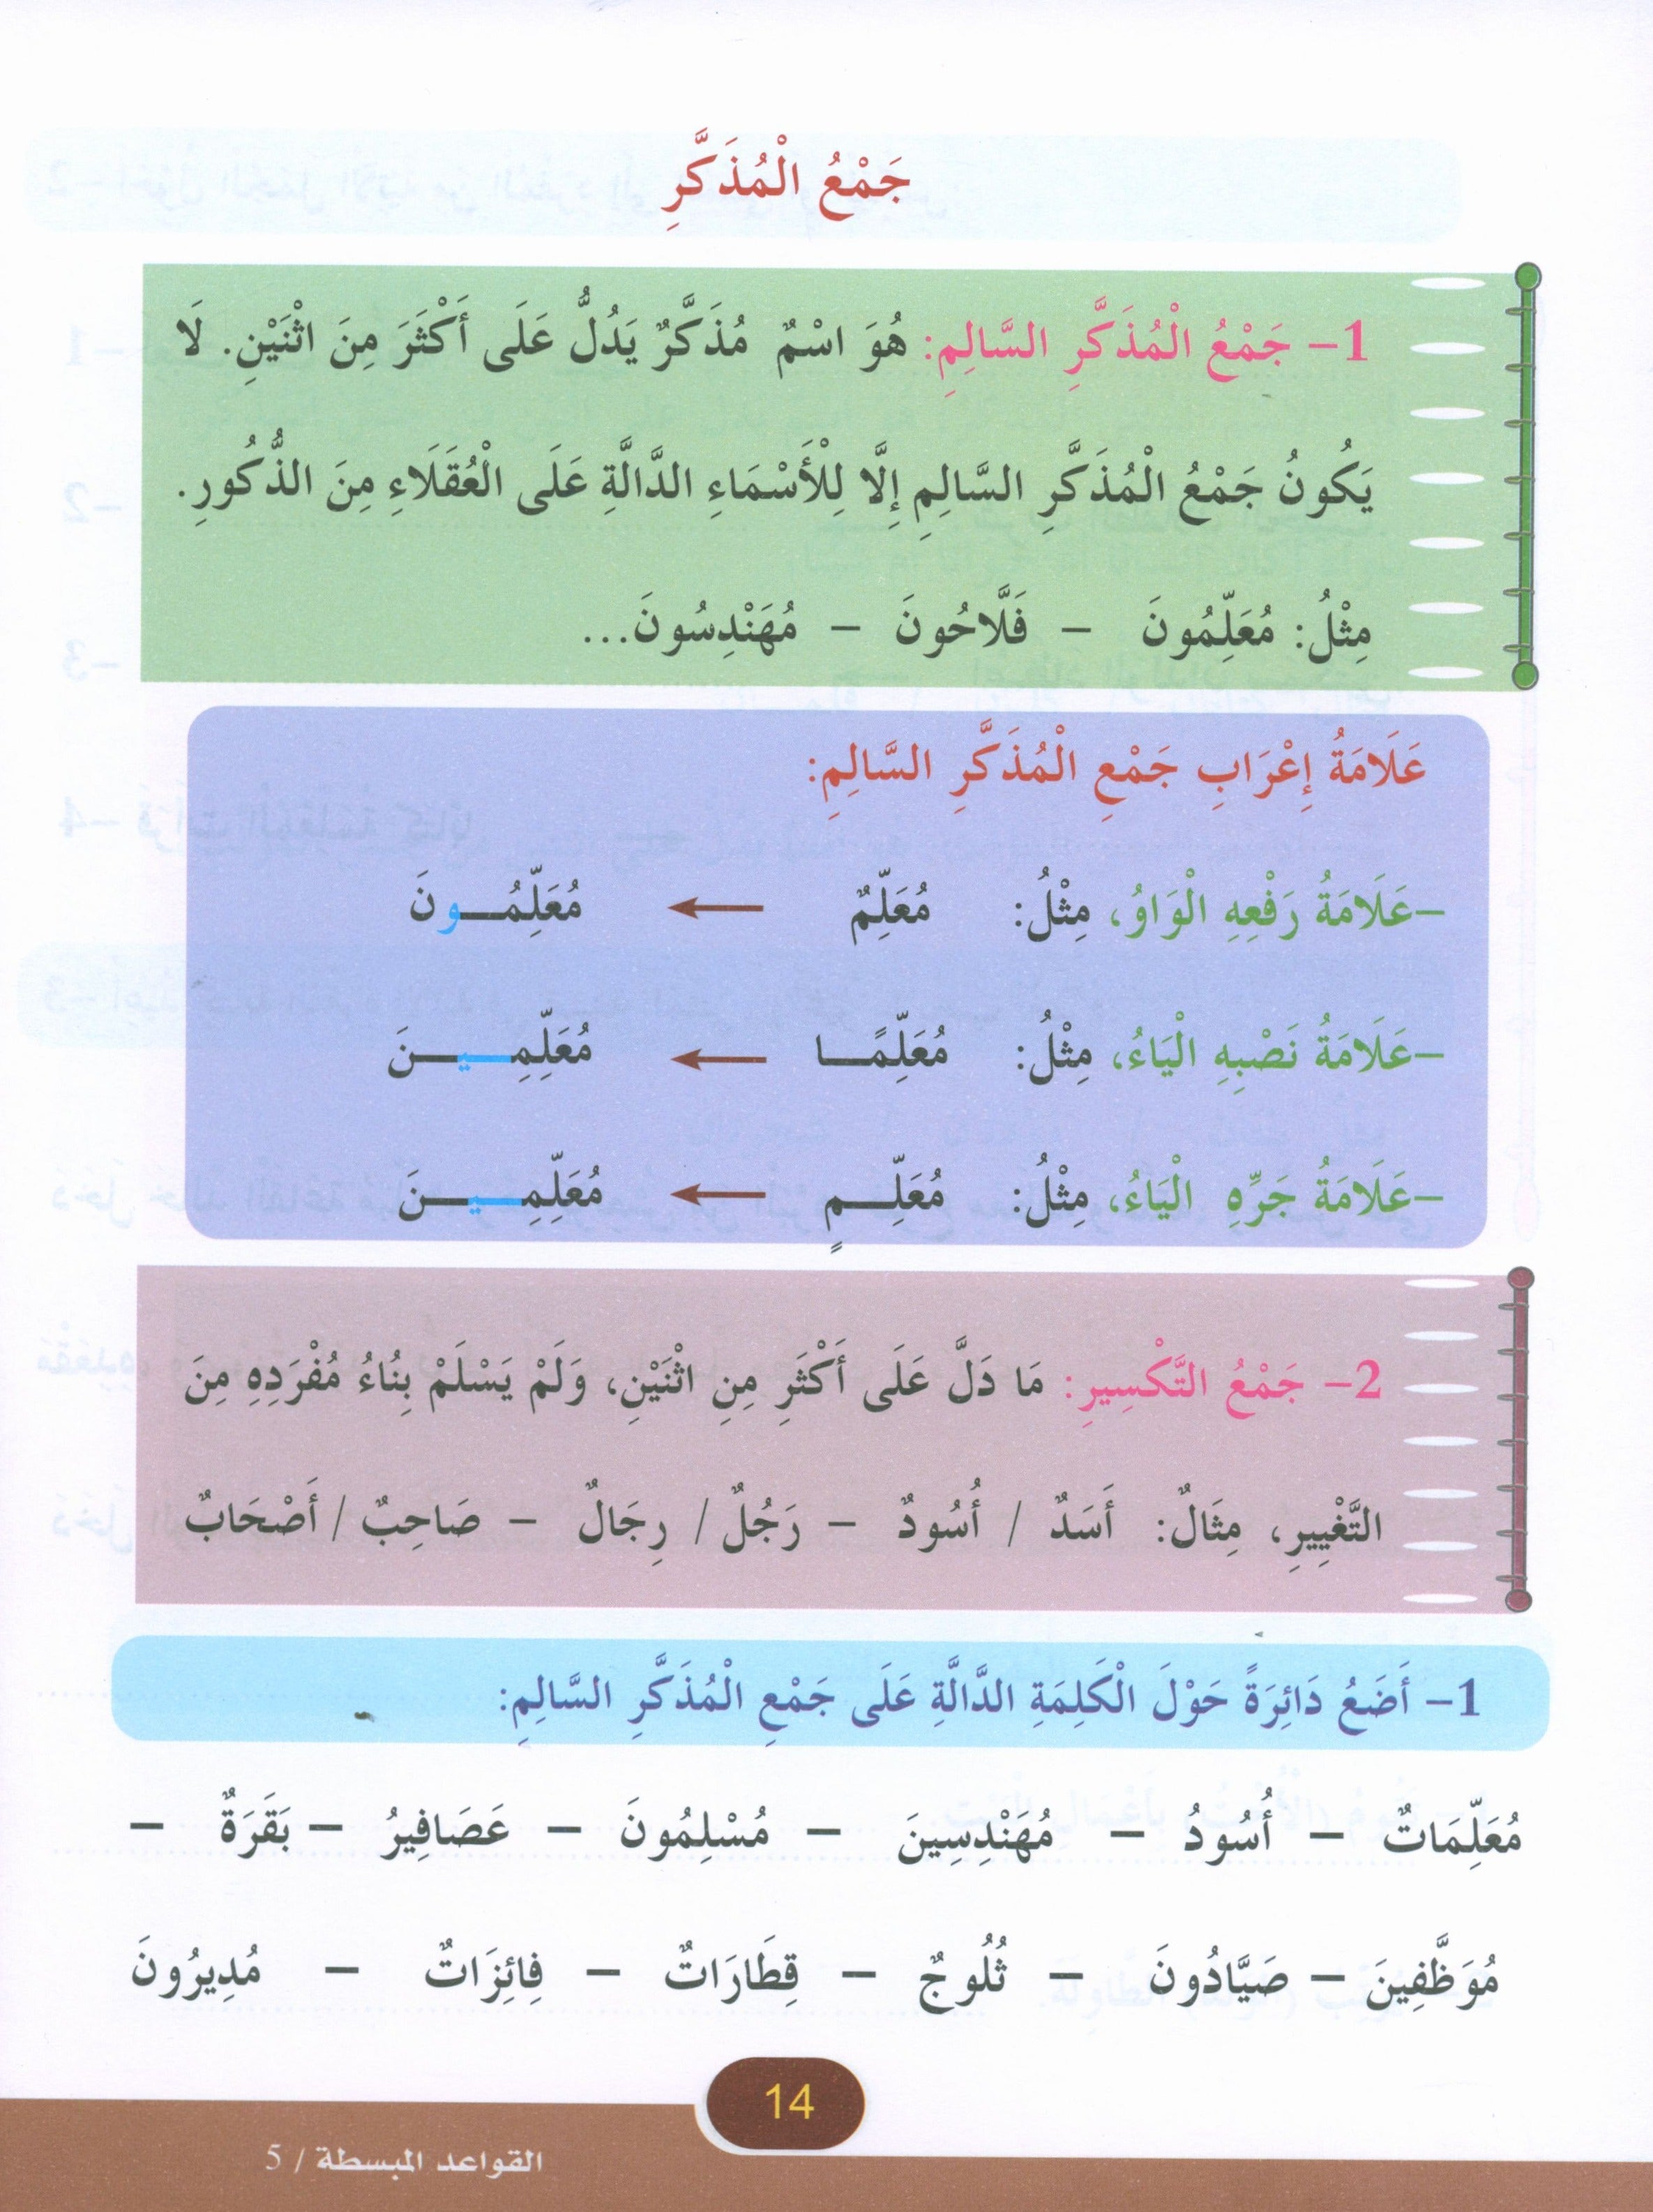 جَمْعُ الْمُذَكَّرِ
1- جَمْعُ الْمُذَكَّرِ السَّالِمِ: هُوَ اسْمٌ مُذَكَّرٌ يَدُلُّ عَلَى أَكْثَرَ مِنَ اثْنَيْنِ. لَا
يَكُونُ جَمْعُ الْمُذَكَّرِ السَّالِمِ إِلَّا لِلْأَسْمَاءِ الدَّالَّةِ عَلَى الْعُقَلَاءِ مِنَ الذُّكُورِ.
مِثْلُ: مُعَلِّمُونَ - فَلَّاحُونَ - مُهَنْدِسُونَ...
عَلَامَةُ إِعْرَابِ جَمْعِ الْمُذَكَّرِ السَّالِمِ:
-عَلَامَةُ رَفْعِهِ الْوَاوُ، مِثْلُ: مُعَلِّمٌ ← مُعَلِّمُـــونَ
-عَلَامَةُ نَصْبِهِ الْيَاءُ، مِثْلُ: مُعَلِّمًـــا ← مُعَلِّمِـــيـــنَ
-عَلَامَةُ جَرِّهِ الْيَاءُ، مِثْلُ: مُعَلِّـــمٍ ← مُعَلِّمِـــيـــنَ
2- جَمْعُ التَّكْسِيرِ: مَا دَلَّ عَلَى أَكْثَرِ مِنِ اثْنَيْنِ، وَلَمْ يَسْلَمْ بِنُاءُ مُفْرَدِهِ مِنَ
التَّغْيِيرِ، مِثَالٌ: أَسَدٌ / أُسُودٌ - رَجُلٌ / رِجَالٌ - صَاحِبٌ / أَصْحَابٌ
1- أَضَعُ دَائِرَةً حَوْلَ الْكَلِمَةِ الدَّالَّةِ عَلَى جَمْعِ الْمُذَكَّرِ السَّالِمِ:
مُعَلِّمَاتٌ - أُسُودُ - مُهَنْدِسِينَ - مُسْلِمُونَ - عَصَافِيرُ - بَقَرَةٌ -
مُوَظَّفِينَ - صَيَّادُونَ - ثُلُوجٌ - قِطَارَاتٌ - فِائِزَاتٌ - مُدِيرُونَ
14
القواعد المبسطة / 5